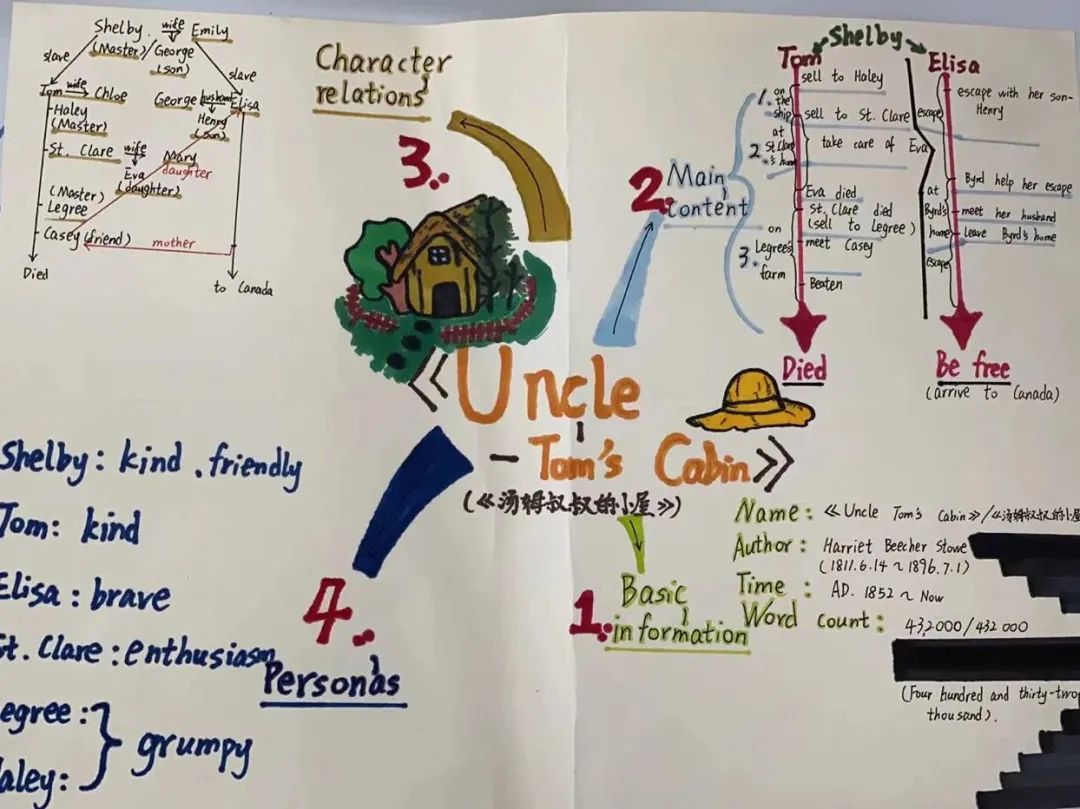 《Uncle
- Tom's Cabin》
(《汤姆叔叔的小屋》)
1.
Basic
information
Name: 《Uncle Tom's Cabin》/《汤姆叔叔的小屋
Author: Harriet Beecher Stowe
(1811.6.14 ~ 1896.7.1)
Time: AD. 1852 ~ Now
Word count: 432000/432 000
(Four hundred and thirty-two
thousand).
2.
Main
content
Shelby
Tom
sell to Haley
1. on the ship
sell to St. Clare
2. at St. Clare's home
take care of Eva
Eva died
St. Clare died
(sell to Legree)
3. on Legree's farm
meet Casey
Beaten
Died
Elisa
escape with her son-
Henry
escape
Byrd help her escape
at Byrd's home
meet her husband
leave Byrd's home
escape
Be free
(arrive to Canada)
3.
Character
relations
Shelby wife Emily
(Master) George
(son)
slave
slave
Tom wife Chloe
George husband Elisa
Haley
(Master)
Henry
(son)
St. Clare wife Mary
Eva
(daughter)
daughter
(Master)
Legree
Casey (friend)
mother
Died
to Canada
4.
Personas
Shelby: kind, friendly
Tom: kind
Elisa: brave
St. Clare: enthusiasm
egree:
aley:
grumpy